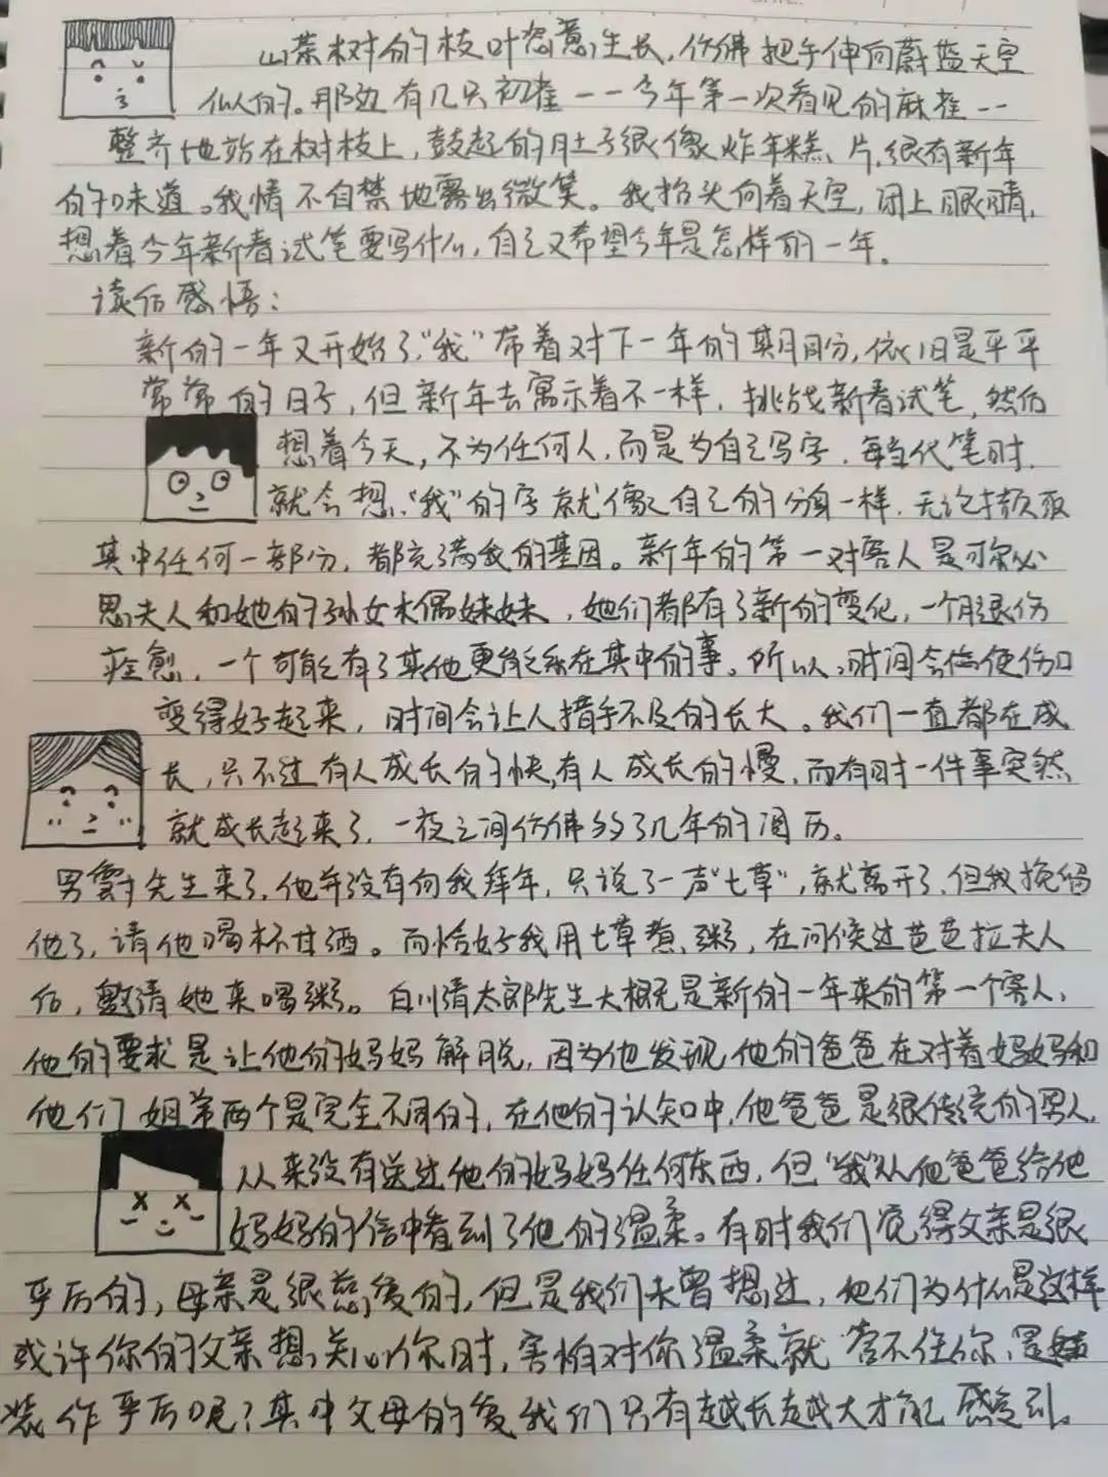 山茶树的枝叶恣意生长,仿佛把手伸向蔚蓝天空
似的。那边有几只初雀——今年第一次看见的麻雀——
整齐地站在树枝上,鼓起的肚子很像炸年糕片,很有新年
的味道。我情不自禁地露出微笑。我抬头向着天空,闭上眼睛,
想着今年新春试笔要写什么,自己又希望今年是怎样的一年。
读后感悟:
新的一年又开始了,“我”带着对下一年的期盼,依旧是平平
常常的日子,但新年去寓示着不一样,挑战新春试笔,然后
想着今天,不为任何人,而是为自己写字,每当代笔时,
就会想,“我”的字就像自己的分身一样,无论撷取
其中任何一部分,都充满我的基因。新年的第一对客人是可尔必
思夫人和她的孙女木偶妹妹,她们都有了新的变化,一个腿伤
痊愈,一个可能有了其他更能乐在其中的事。所以,时间会使伤口
变得好起来,时间会让人措手不及的长大。我们一直都在成
长,只不过有人成长的快,有人成长的慢,而有时一件事突然
就成长起来了,一夜之间仿佛多了几年的阅历。
男爵先生来了,他并没有向我拜年,只说了一声“七草”,就离开了,但我挽留
他了,请他喝杯甘酒。而恰好我用七草煮粥,在问候过芭芭拉夫人
后,邀请她来喝粥。白川清太郎先生大概是新的一年来的第一个客人,
他的要求是让他的妈妈解脱,因为他发现他的爸爸在对着妈妈和
他们姐弟两个是完全不同的,在他的认知中,他爸爸是很传统的男人,
从来没有送过他的妈妈任何东西,但“我”从他爸爸给他
妈妈的信中看到了他的温柔。有时我们觉得父亲是很
严厉的,母亲是很慈爱的,但是我们未曾想过,他们为什么是这样
或许你的父亲想关心你时,害怕对你温柔就管不住你,
装作严厉呢?其中父母的爱我们只有越长越大才能感受到。